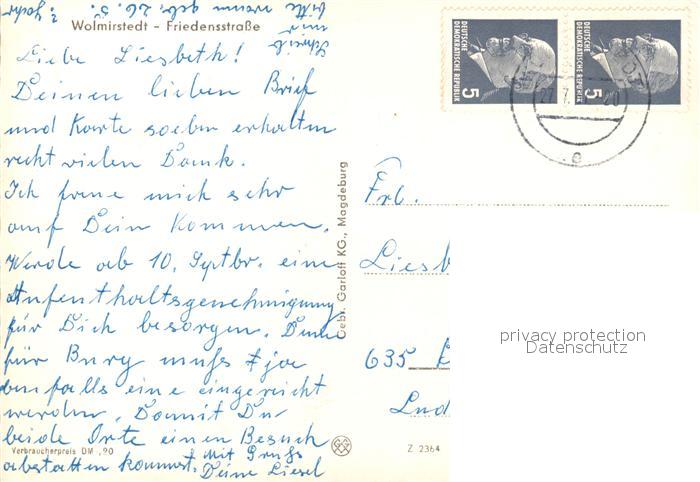 bitte wann geb. 26. 5. ? Jahr
Schreib mir
Wolmirstedt - Friedensstraße
Liebe Liesbeth!
Deinen lieben Brief
und Karte soeben erhalten
recht vielen Dank.
Ich freue mich sehr
auf Dein Kommen.
Werde ab 10. Septbr. eine
Aufenthaltsgenehmigung
für Dich besorgen. Denn
für Burg muß ja
benfalls eine eingereicht
werden. Damit Du
beide Orte einen Besuch
abstatten kannst. Mit Gruß
Deine Liesel
Verbraucherpreis DM -,90
Gebr. Garloff KG., Magdeburg
Z 2364
DEUTSCHE
DEMOKRATISCHE REPUBLIK
5
DEUTSCHE
DEMOKRATISCHE REPUBLIK
5
27.7.
20
e
Frl.
Liesb
635
privacy protection
Datenschutz